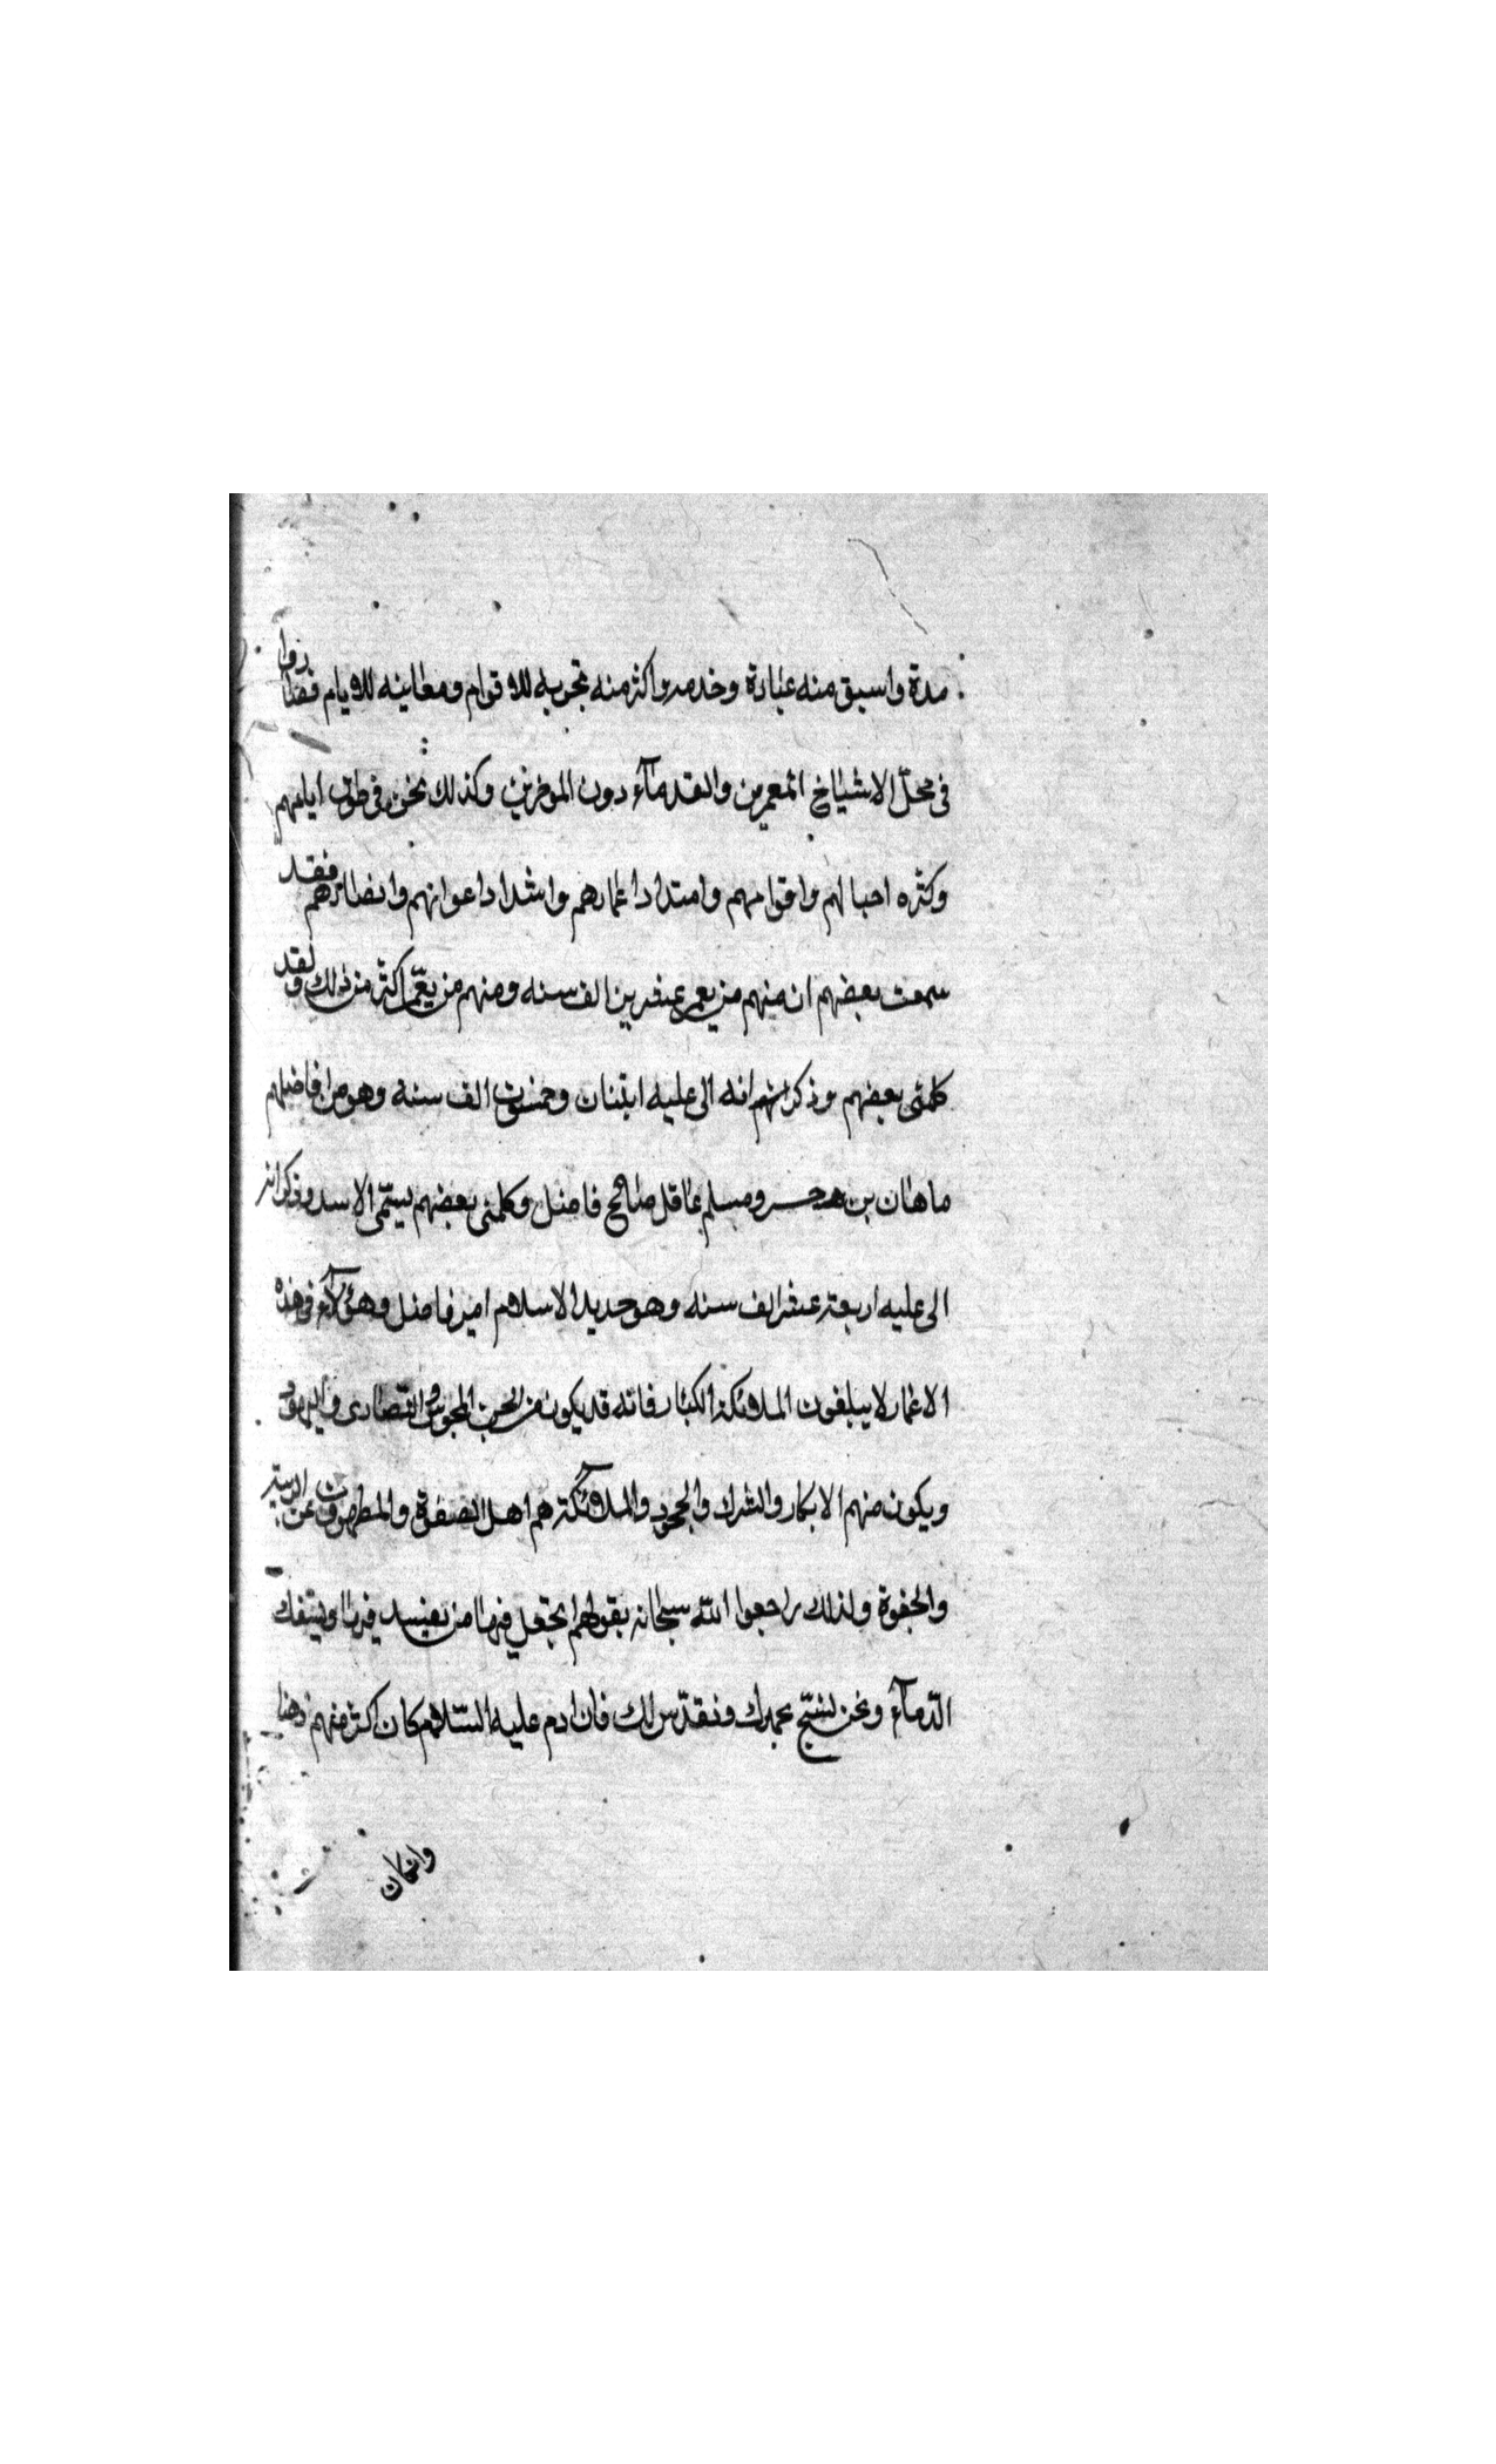 مدة واسبق منه عبادة وخدمه واكثر منه تجربه للاقوام ومعاينه للايام فصاروا
فى محلّ الاشياخ المعمرين والقدمآء دون الموخرين وكذلك نحن فى طول ايامهم
وكثره احبالهم واقوامهم وامتداد اعمارهم واشداد اعوانهم وانصارهم فقد
سمعت بعضهم ان منهم من يعمر عشرين الف سنه ومنهم من يعمّر اكثر من ذلك ولقد
كلمنى بعضهم وذكر انه اتى عليه اثنتان وخمسون الف سنة وهو من افاضلهم
ماهان بن ومسلم عاقل صالح فاضل وكلمنى بعضهم يسمّى الاسد وذكر انه
اتى عليه اربعة عشر الف سنه وهو حديد الاسلام امير فاضل وهؤلآء فى هذه
الاعمار لا يبلغون الملائكة الكبار فانه قد يكون من الجن المجوس والنصارى واليهود
ويكون منهم الانكار والشرك والجحود والملآئكة هم اهل الصفوة والمطهرون عن
والجفوة ولذلك راجعوا الله سبحانه بقولهم اتجعل فيها من يفسد فيها ويسفك
الدّمآء ونحن نسبّح بحمدك ونقدّس لك فان ادم عليه السّلام كان اكثر منهم ذهنا
وان كان